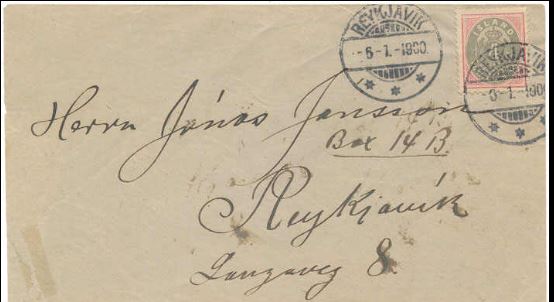 REYKJAVIK
-6-1.-1900.
ÍSLAND
REYKJAVIK
-6-1-1900
Herrn Jónas Jonsson
Box 14 B
Reykjavík
Laugaveg 8